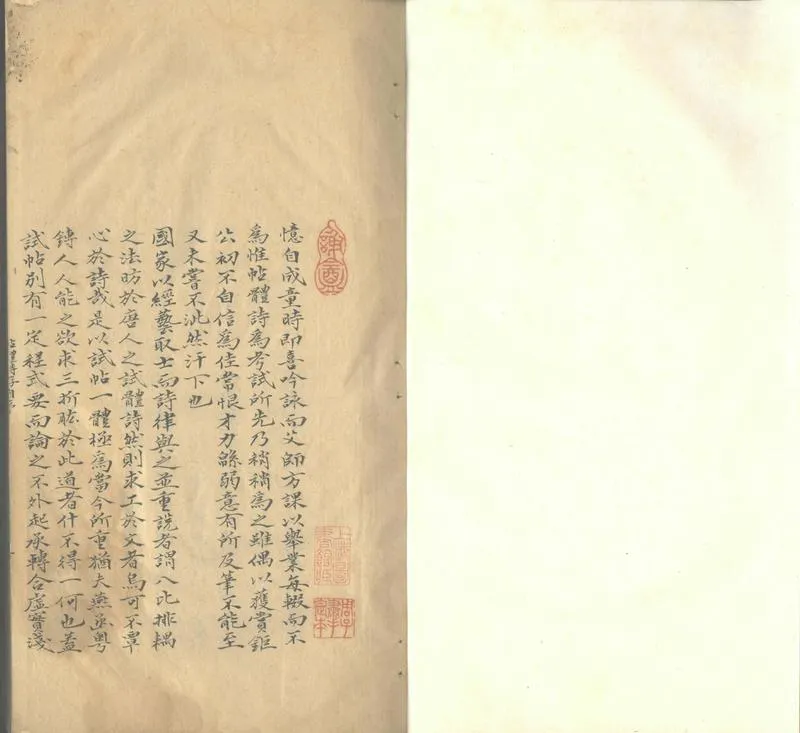 憶自成童時即喜吟詠而父師方課以舉業每輟而不
為惟帖體詩為考試所先乃稍稍為之雖偶以獲賞鉅
公初不自信為佳嘗恨才力緜弱意有所及筆不能至
又未嘗不泚然汗下也
國家以經藝取士而詩律與之並重説者謂八比排耦
之法昉於唐人之試體詩然則求工於文者烏可不覃
心於詩哉是以試帖一體極為當今所重猶夫燕函粤
鎛人人能之欲求三折肱於此道者什不得一何也蓋
試帖別有一定程式要而論之不外起承轉合虛實淺